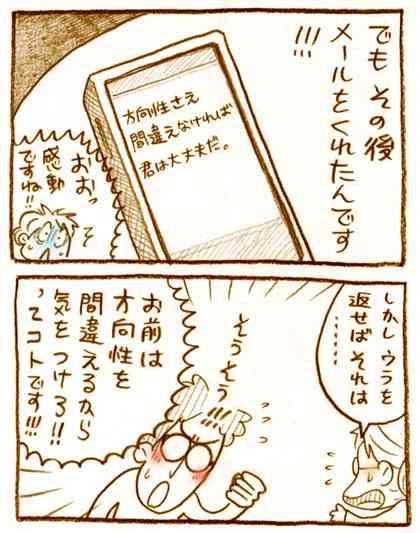 でも その後
メールをくれたんです
!!!
方向性さえ
間違えなければ
君は大丈夫だ。
おおっ
感動
ですね!!
しかし ウラを
返せば それは
・・・・・・
そうそう!!!
お前は
方向性を
間違えるから
気をつけろ!!
ってコトです!!!